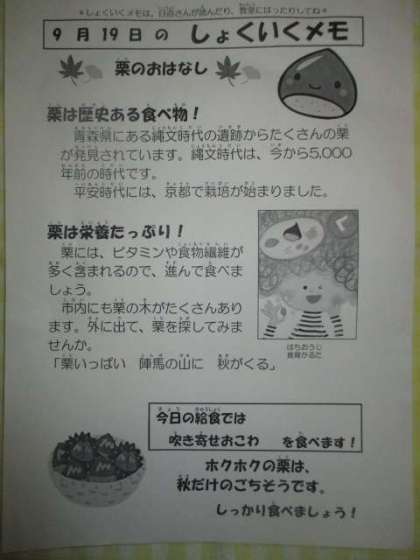 *しょくいくメモは、日直さんが読んだり、教室にはったりしてね*
9月19日の しょくいくメモ
栗のおはなし
栗は歴史ある食べ物！
青森県にある縄文時代の遺跡からたくさんの栗
が発見されています。縄文時代は、今から5,000
年前の時代です。
平安時代には、京都で栽培が始まりました。
栗は栄養たっぷり！
栗には、ビタミンや食物繊維が
多く含まれるので、進んで食べま
しょう。
市内にも栗の木がたくさんあり
ます。外に出て、栗を探してみま
せんか。
「栗いっぱい 陣馬の山に 秋がくる」
く
はちおうじ
食育かるた
今日の給食では
吹き寄せおこわ を食べます！
ホクホクの栗は、
秋だけのごちそうです。
しっかり食べましょう！